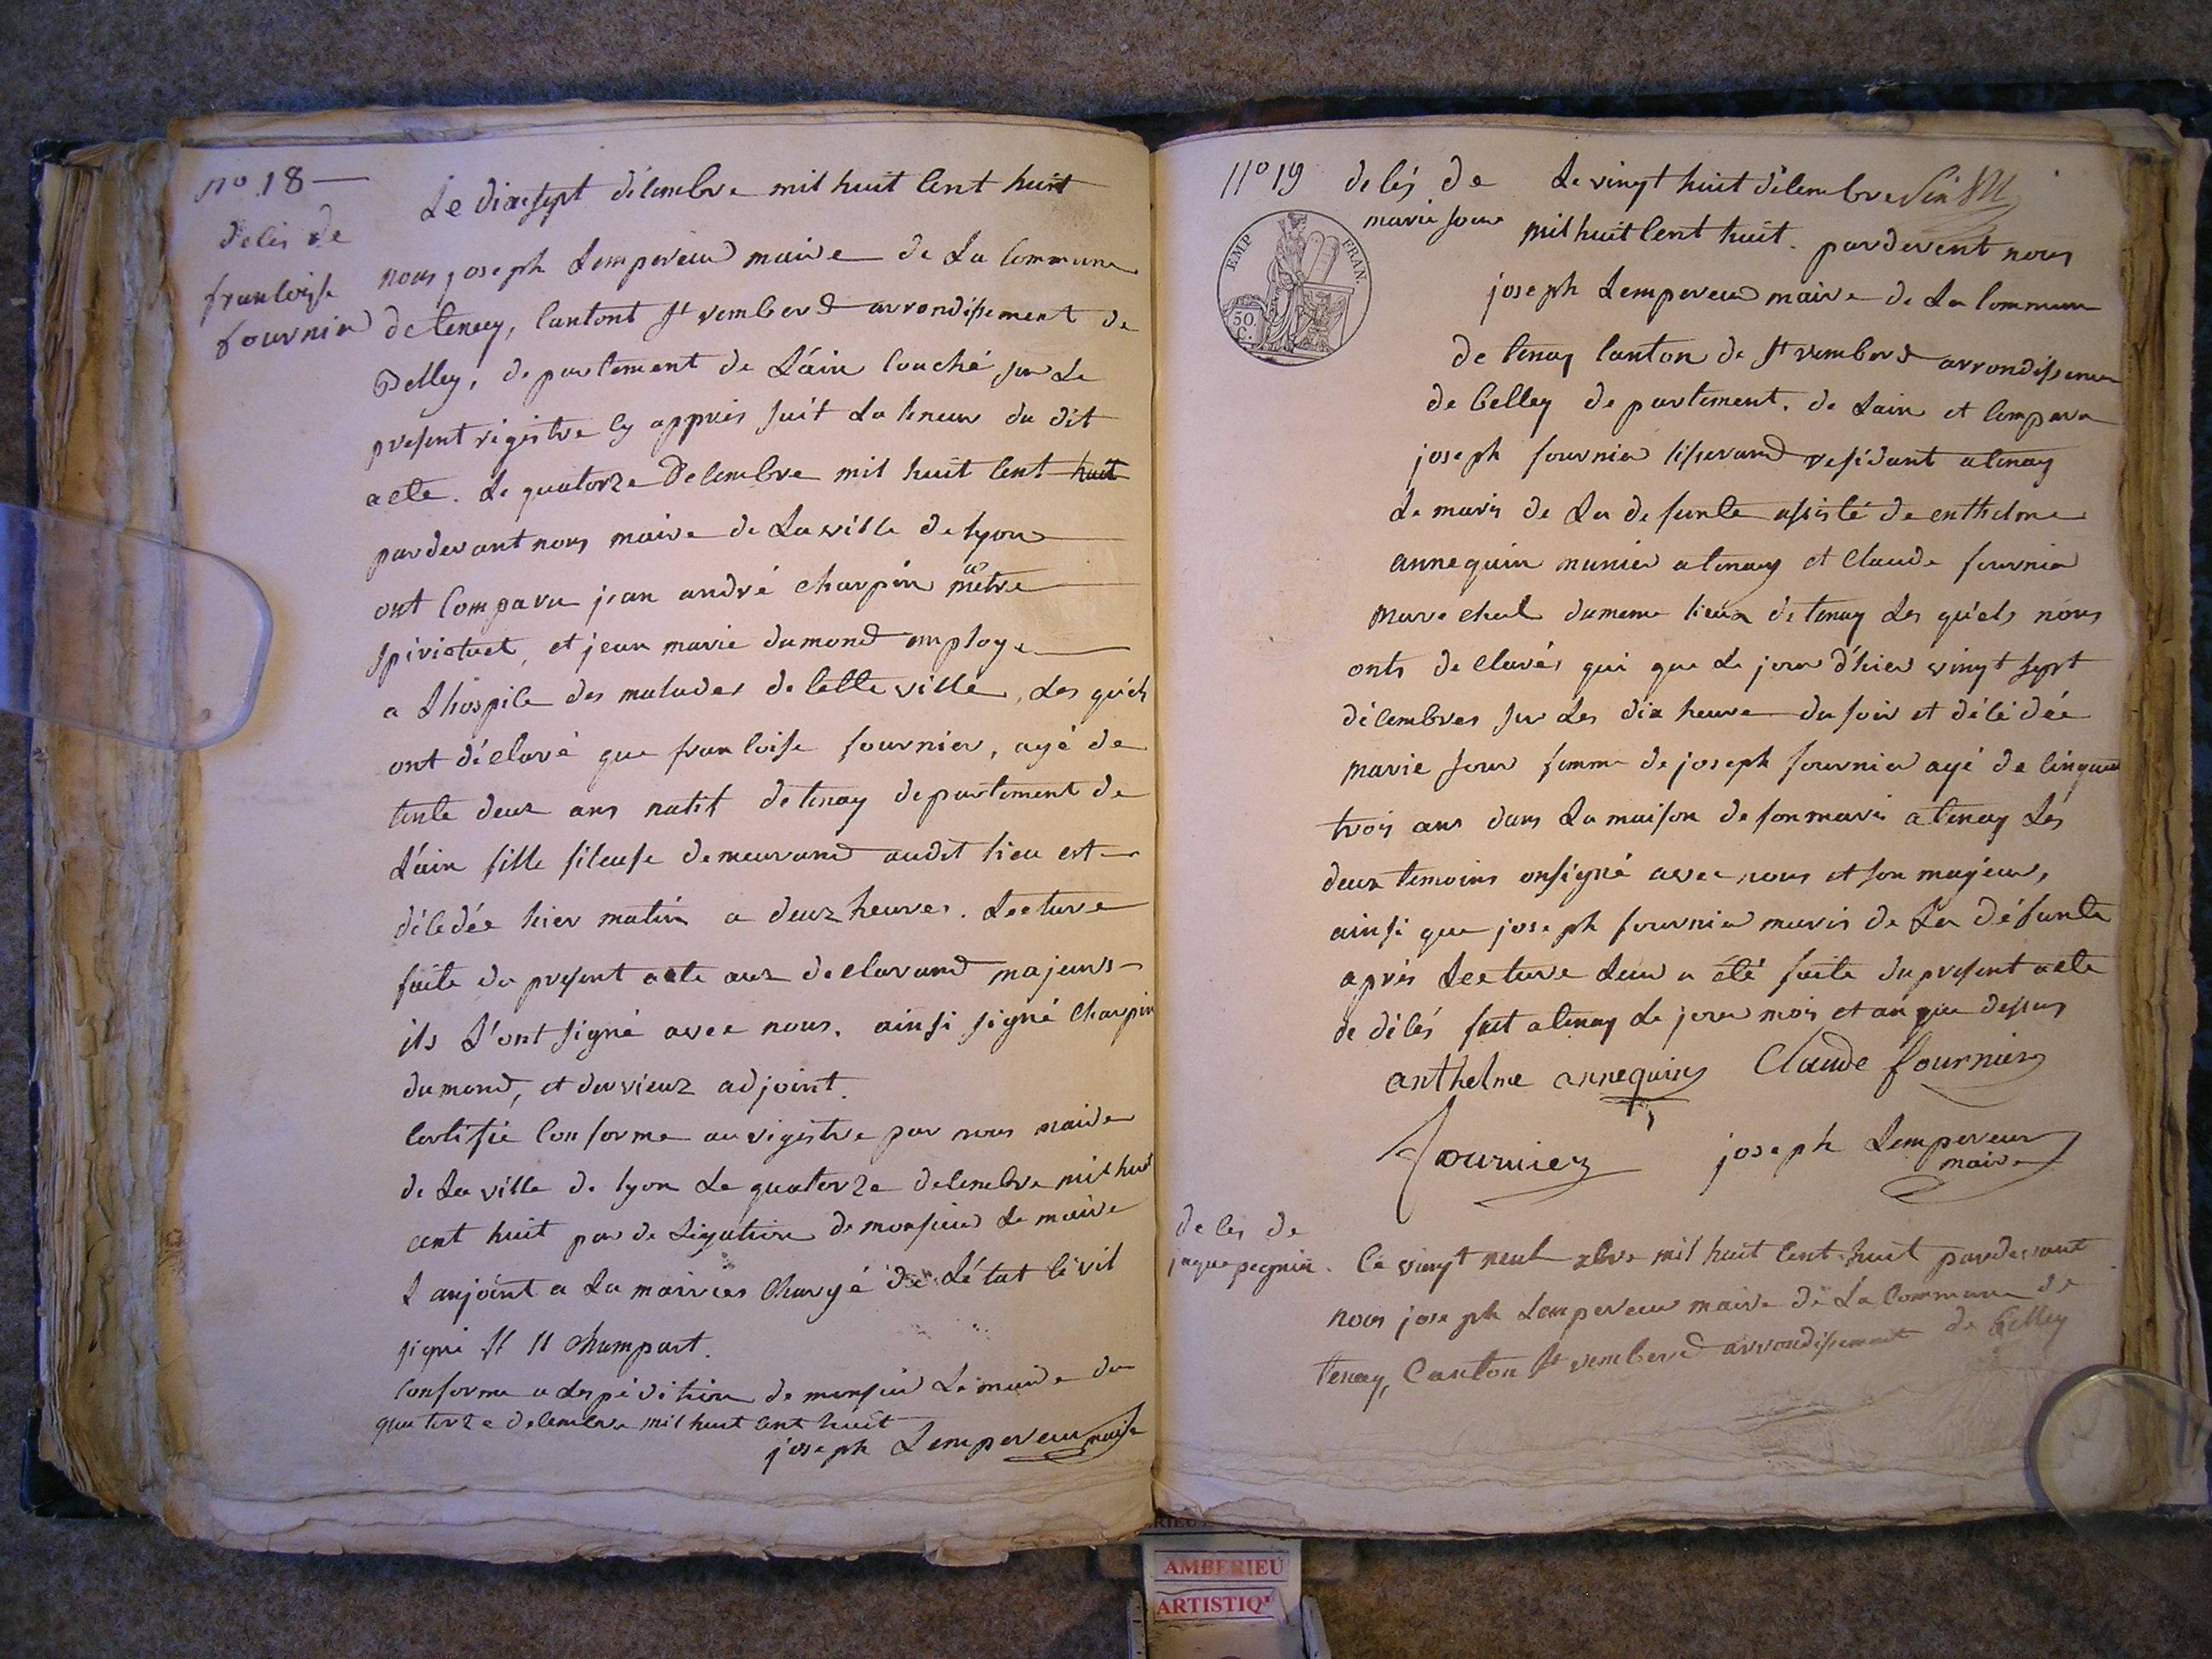 no 18 —
déces de
francoisse
fournier
Le dix sept décembre mil huit cent huit
nous joseph Lempereur maire de La Commune
de tenay, Cantont st rembert arrondissement de
Belley, departement de L'ain Couché sur Le
present régistre Cy apprés suit La teneur du dit
acte. Le quatorze Decembre mil huit Cent huit
pardevant nous maire de La ville de Lyon
ont Comparu jean andré charpin mètre
spirictuel, et jean marie dumond employe
a Lhospice des malades de Cette ville, Les quels
ont déclaré que francoise fournier, agé de
tente deux ans natif de tenay departement de
L'ain fille fileuse demeurand audit lieu est
décedée hier matin a deux heures. Lecture
faite du present acte aux declarand majeurs —
ils L'ont signé avec nous. ainsi signé Charpin
dumond, et dervieux adjoint.
Certifié Conforme au régistre par nous maire
de La ville de Lyon Le quatorze decembre mil huit
cent huit par de Ligation de monsieur Le maire
L anjoint a La mairies Chargé de L'état Cévil
signé champart.
Conforme a Lexpédition de monsieur Le maire du
quatorze decembre mil huit Cent huit
joseph Lempereur maire
no 19
decés de
marie
EMP FRAN.
50. C.
Le vingt huit décembre
mil huit Cent huit. pardevent nous
joseph Lempereur maire de La Commune
de tenay Canton de st rembert arrondissemen
de Belley departement. de Lain et Compara
joseph fournier tisserand residant a tenay
Le maris de La defunte assisté de enthelme
annequin munier a tenay et Claude fournier
marechal dumeme lieux de tenay Les quels nous
onts declarés qui que Le jour d'hier vingt sept
décembres sur Les dix heure du soir et décédée
marie femme de joseph fournier agé de Cinquente
trois ans dans La maison de son maris a tenay Lés
deux temoins onsigné avec nous et son majeur,
ainsi que joseph fournier maris de La défunte
aprés Lecture Leur a été faite du present acte
de décés fait a tenay Le jour mois et an que dessus
anthelme annequin Claude fournier
fournier joseph Lempereur
maire
deces de
jaque pegnier.
Ce vingt neuf xbre mil huit Cent huit pardevant
nous joseph Lempereur maire de La Commune de
tenay, Canton st rembered arrondissement de Belley
AMBERIEU
ARTISTIQ